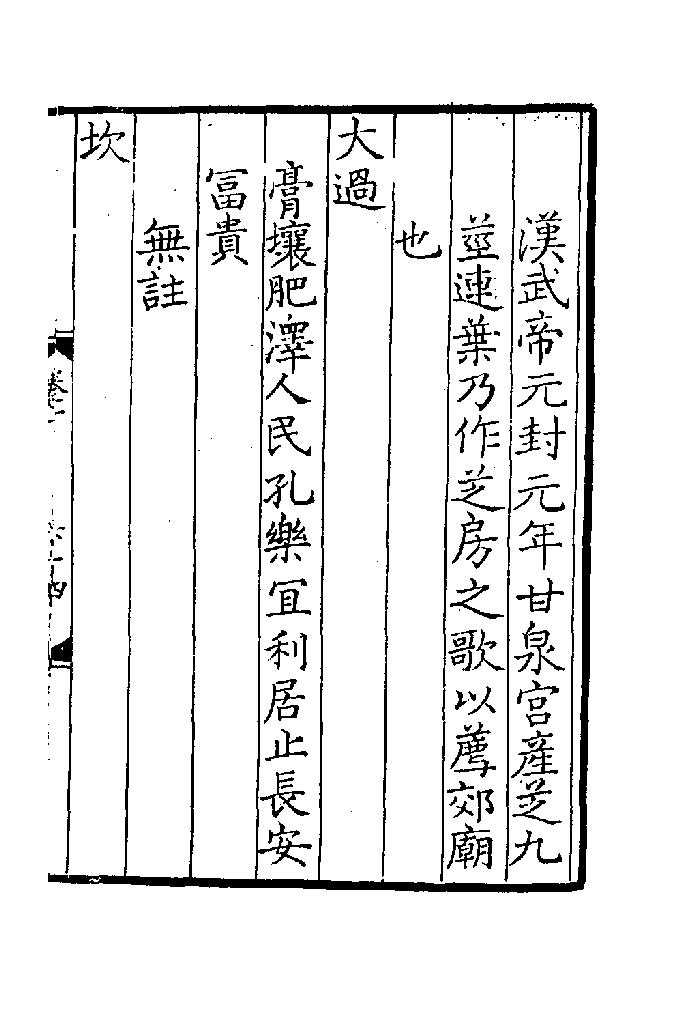 漢武帝元封元年甘泉宮產芝九
莖連葉乃作芝房之歌以薦郊廟
也
大過
膏壤肥澤人民孔樂冝利居止長安
冨貴
無註
坎